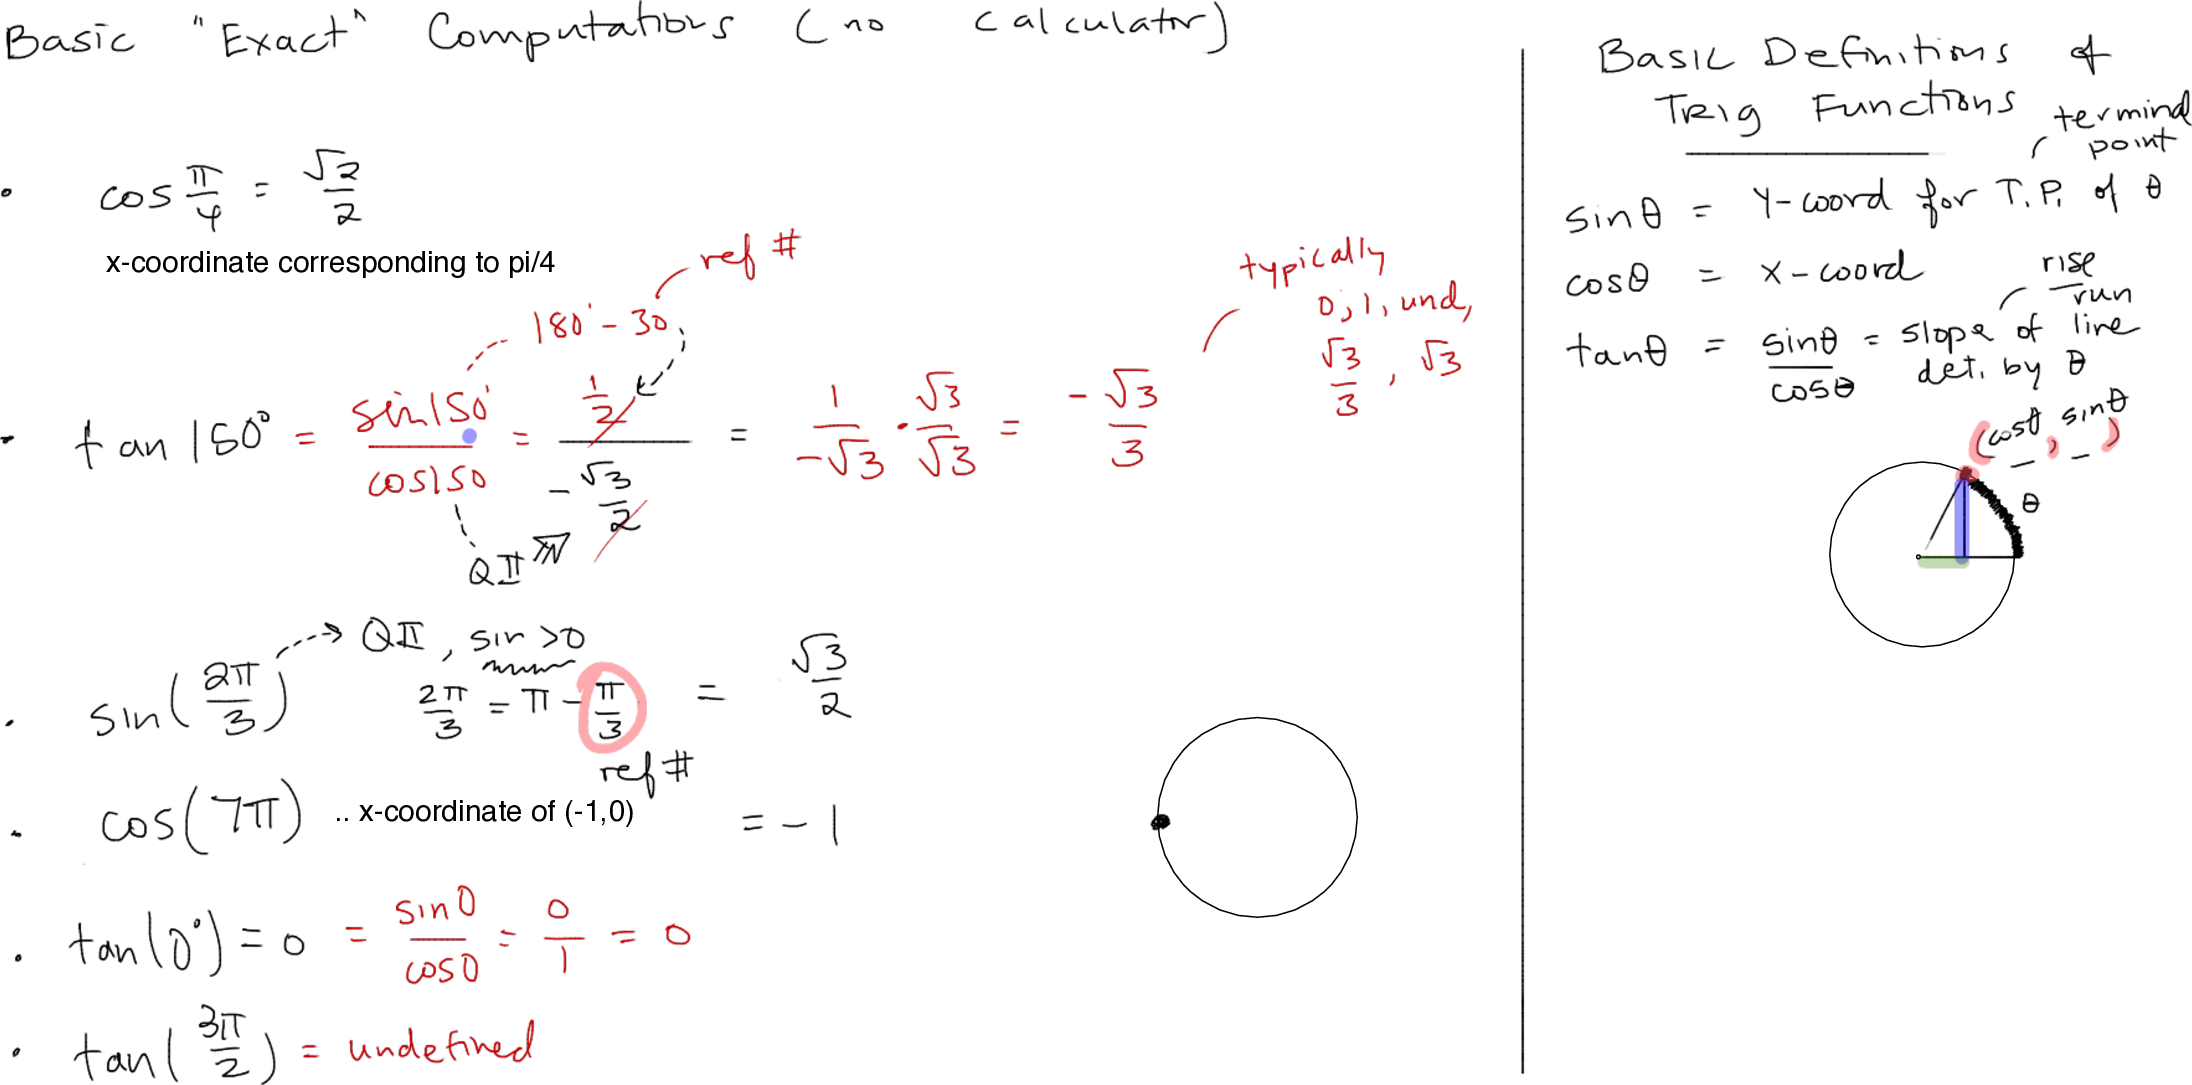 Basic "Exact" Computations (no calculator)
• cos π/4 = √2/2
x-coordinate corresponding to pi/4
ref #
180° - 30,
typically
0, 1, und,
√3/3, √3
• tan 150° = sin150°/cos150 = (1/2)/(-√3/2) = 1/-√3 · √3/√3 = -√3/3
QII
QII, sin >0
• sin(2π/3) 2π/3 = π - π/3 = √3/2
ref #
• cos(7π) .. x-coordinate of (-1,0) = -1
• tan(0°) = 0 = sin0/cos0 = 0/1 = 0
• tan(3π/2) = undefined
Basic Definitions of
Trig Functions
terminal
point
sinθ = y-coord for T.P. of θ
cosθ = x-coord
rise/run
tanθ = sinθ/cosθ = slope of line
det. by θ
(cosθ, sinθ)
θ